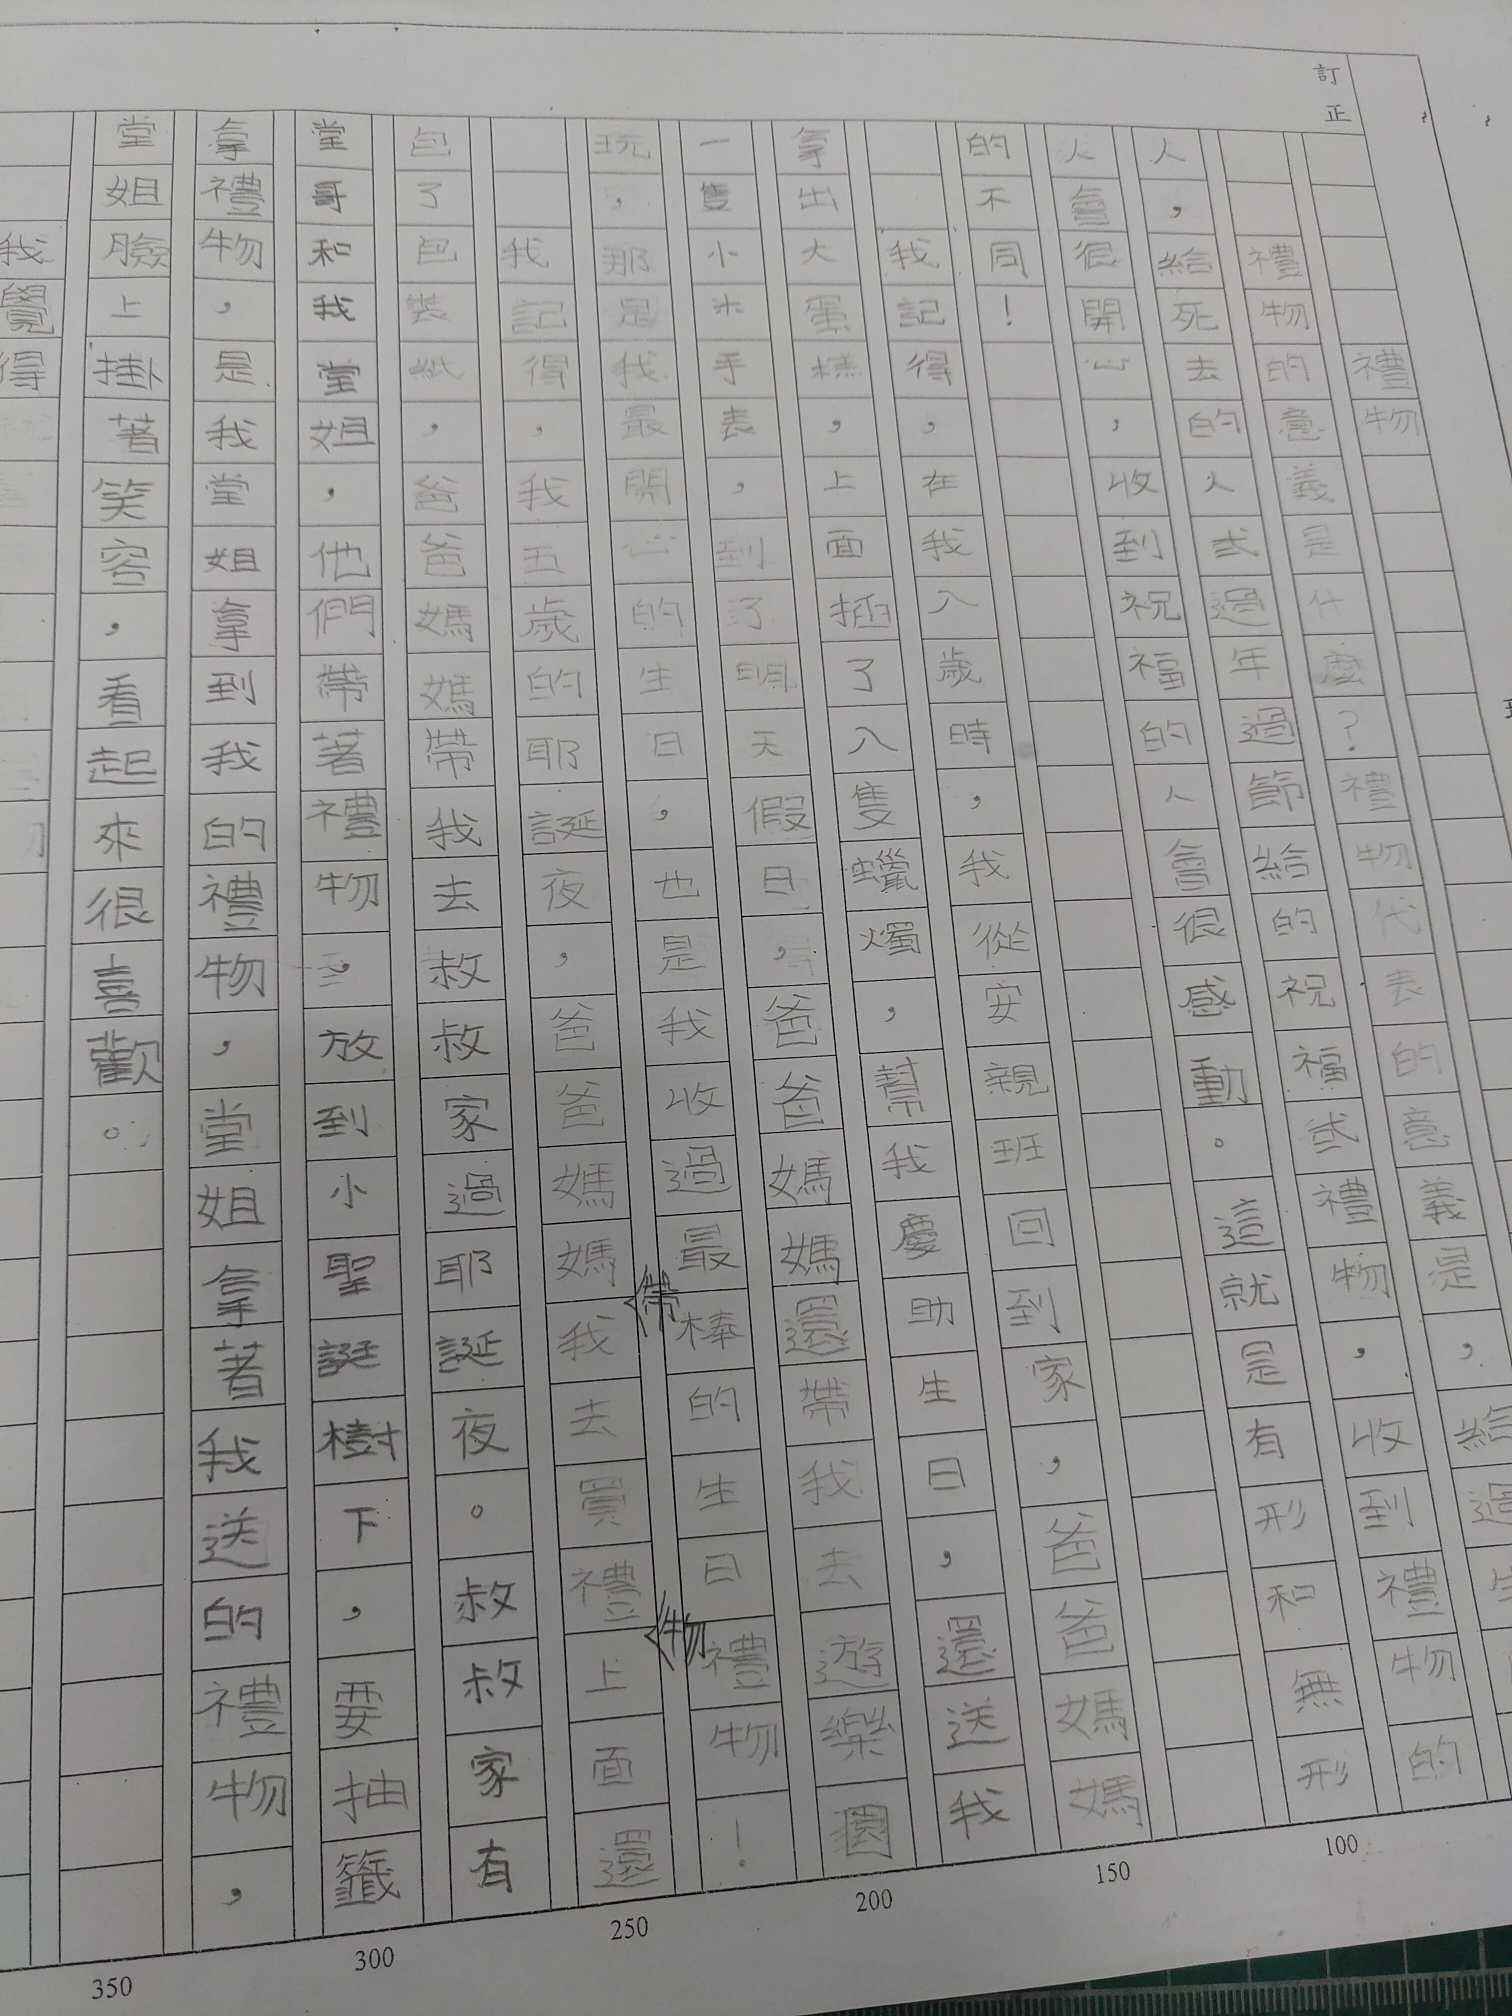 訂正
禮物
禮物的意義是什麼？禮物代表的意義是，給過
人，給死去的人或過年過節給的祝福或禮物，收到禮物的
人會很開心，收到祝福的人會很感動。這就是有形和無形
的不同！
我記得，在我八歲時，我從安親班回到家，爸爸媽媽
拿出大蛋糕，上面插了八隻蠟燭，幫我慶助生日，還送我
一隻小木手表，到了明天假日，爸爸媽媽還帶我去遊樂園
玩，那是我最開心的生日，也是我收過最棒的生日禮物！
我記得，我五歲的耶誕夜，爸爸媽媽帶我去買禮物上面還
包了包裝紙，爸爸媽媽帶我去叔叔家過耶誕夜。叔叔家有
堂哥和我堂姐，他們帶著禮物，放到小聖誕樹下，要抽籤
拿禮物，是我堂姐拿到我的禮物，堂姐拿著我送的禮物，
堂姐臉上掛著笑容，看起來很喜歡。
我覺得
100
150
200
250
300
350